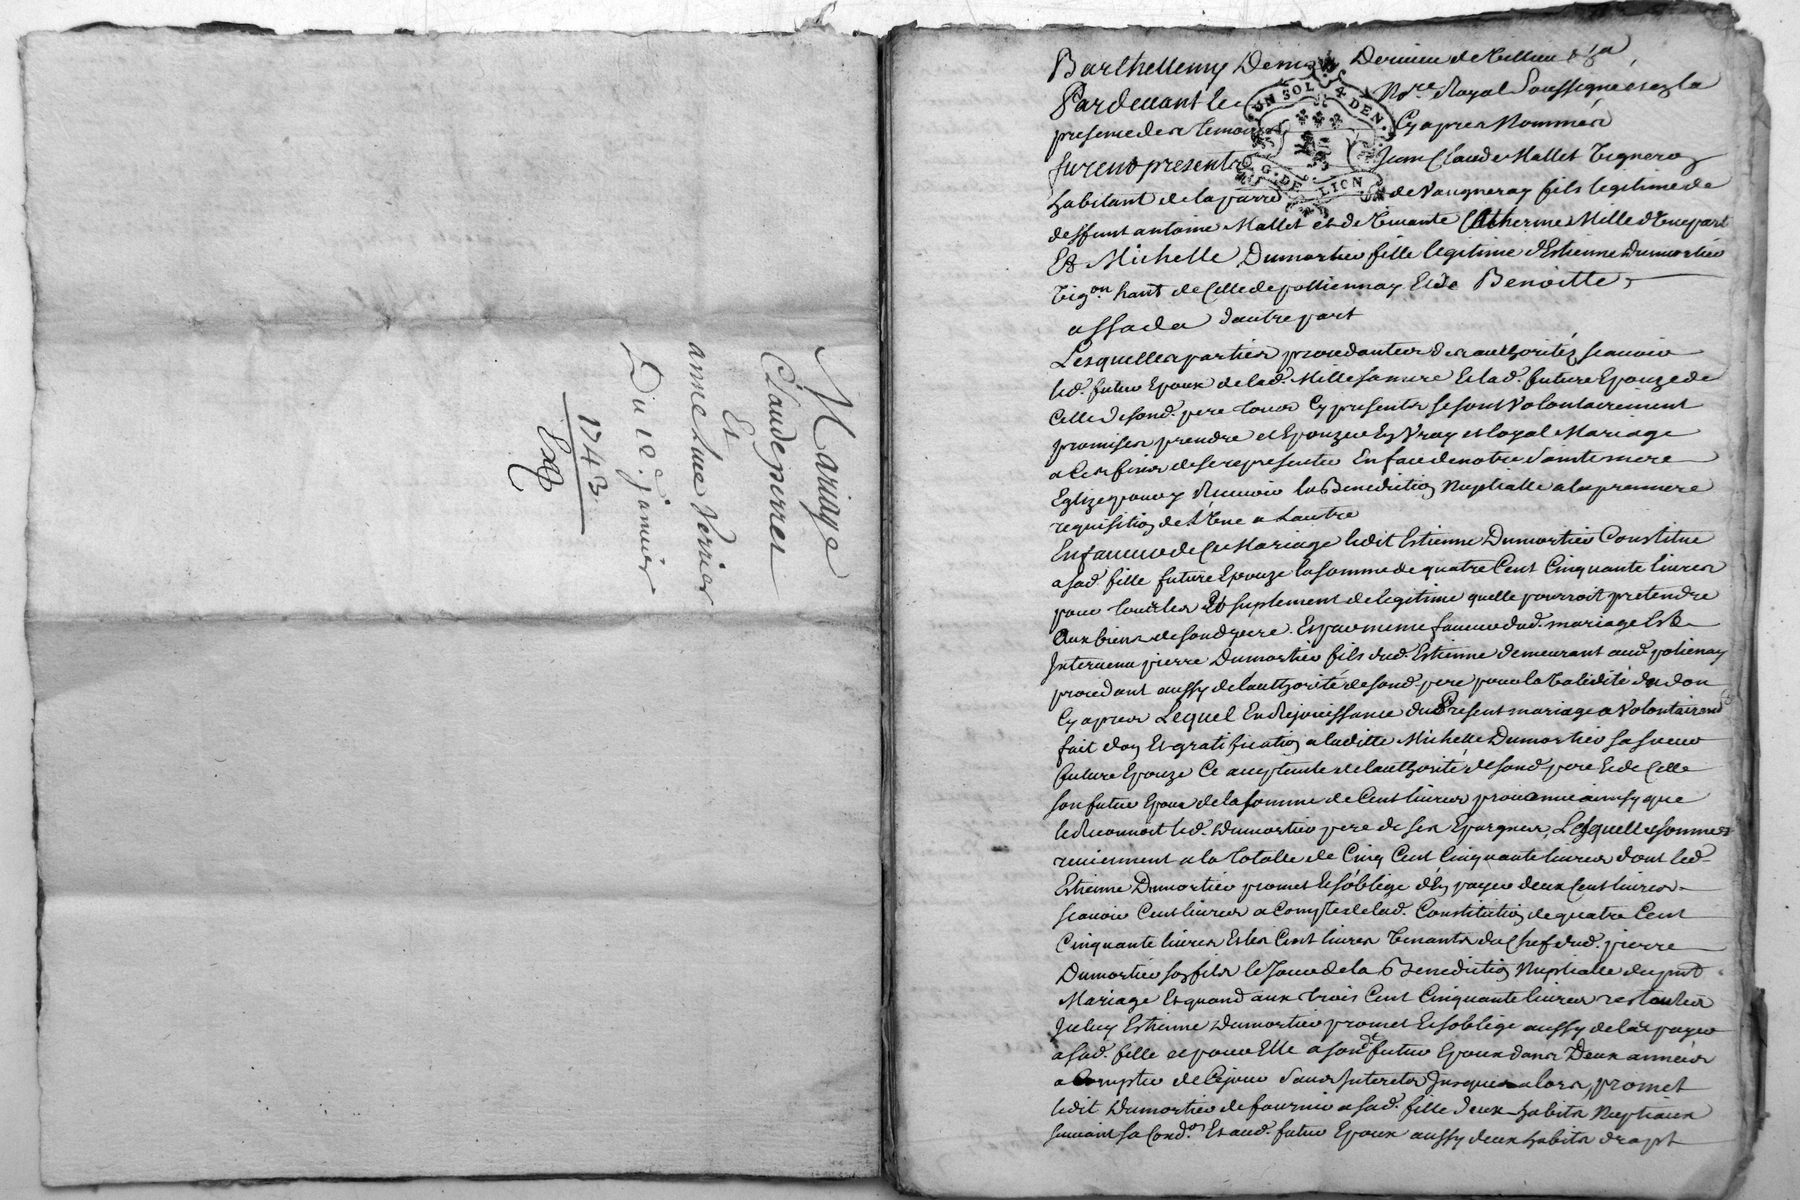 Mariage
Claude perret
Et
anne Luce Verrier
Du 12e. janvier
1743
Exp
Barthellemy Denis Dervieu de Villieu &a
Pardevant le No.re Royal Soussigné et ez la
presence des temoins Cy apres Nommés
furent presents Jean Claude Mallet Vigneron
habitant de la parre de Vaugneray fils legitime de
deffunt antoine Mallet et de vivante Catherine Mille d'Une part
Et Michelle Dumortier fille legitime d'Estienne Dumortier
vig.on hant de Celle de polliennay Et de Benoitte
assada d'autre part
Lesquelles parties procedantes des authorités scavoir
led. futur Epoux de lad. Mille sa mere Et lad. future Epouze de
Celle de sond. pere tous Cy presents se sont Volontairement
promises prendre et Epouzer En Vray et loyal Mariage
a Ces fins de se representer En face de notre Sainte mere
Eglize pour y recevoir la Benediction Nuptialle a la premiere
requisition de L'Une a Lautre
En faveur de Ce Mariage ledit Estienne Dumortier Constitue
a sad. fille future Epouze la somme de quatre Cent Cinquante livres
pour tous les Et suplement de legitime quelle pourroit pretendre
Aux biens de sond. pere. Et par meme faveur dud. mariage Est
Intervenu pierre Dumortier fils dud. Estienne demeurant aud. polienay
procedant aussy de lauthorité de sond. pere pour la validité du don
Cy apres Lequel En Rejouissance du Present mariage a Volontairem.t
fait don Et gratification a laditte Michelle Dumortier sa soeur
future Epouze Ce acceptante de lauthorité de sond. pere Et de Celle
son futur Epoux de la somme de Cent livres provenue ainsy que
le Reconnoit led. Dumortier pere de ses Epargnes, Lesquelles sommes
reviennent a la totalle de Cinq Cent Cinquante livres dont led.
Estienne Dumortier promet Et s'oblige d'En payer deux Cent livres
scavoir Cent livres a Compte de lad. Constitution de quatre Cent
Cinquante livres Et les Cent livres venants du Chef dud. pierre
Dumortier son fils le Jour de la Benediction Nuptialle du pnt
Mariage Et quand aux trois Cent Cinquante livres restantes
Iceluy Estienne Dumortier promet Et soblige aussy de les payer
a sad. fille et pour Elle a sond.t futur Epoux dans Deux années
a Compter de Ce jour sans Interets Jusques alors, promet
ledit Dumortier de fournir a sad. fille deux habits Nuptiaux
suivant sa Cond.on Et aud. futur Epoux aussy deux habits drapt